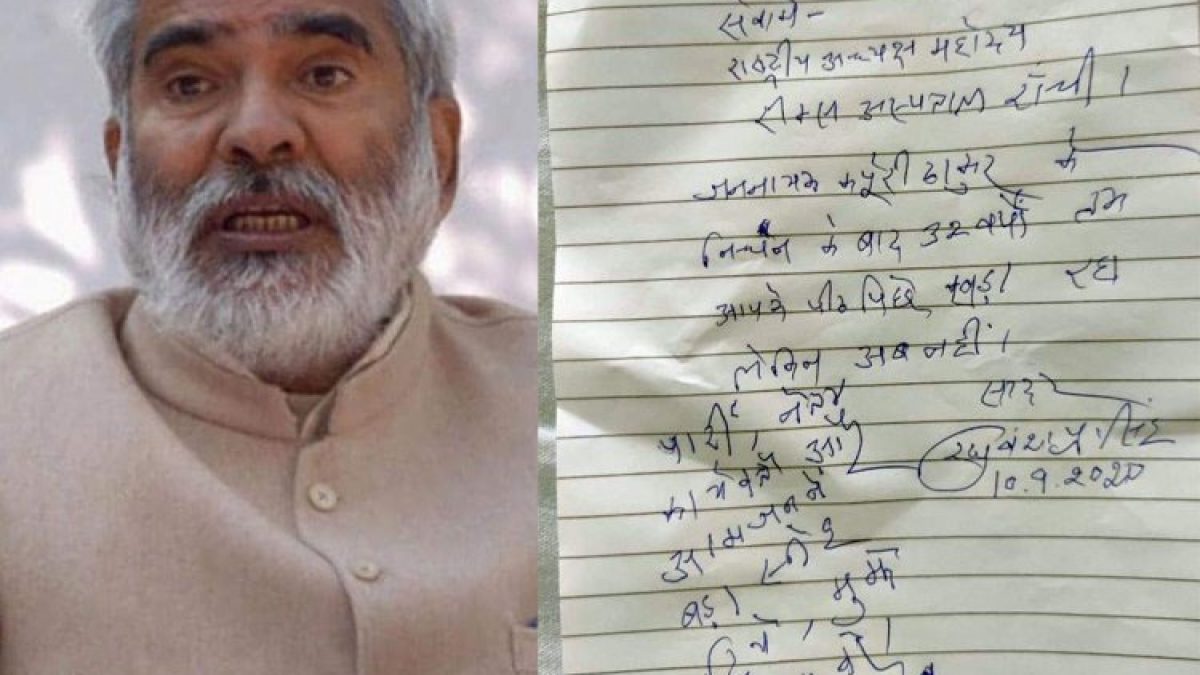 सेवा में -
राष्ट्रीय अध्यक्ष महोदय
रिम्स अस्पताल राँची ।
जननायक कर्पूरी ठाकुर के
निधन के बाद ३२ वर्षों तक
आपके पीठ पिछे खड़ा रहा
लेकिन अब नहीं ।
पार्टी, नेता
कार्यकर्ता और
आमजन ने
बड़ा स्नेह
दिया, मुझे
सादर
रघुवंश प्र० सिंह
10.9.2020